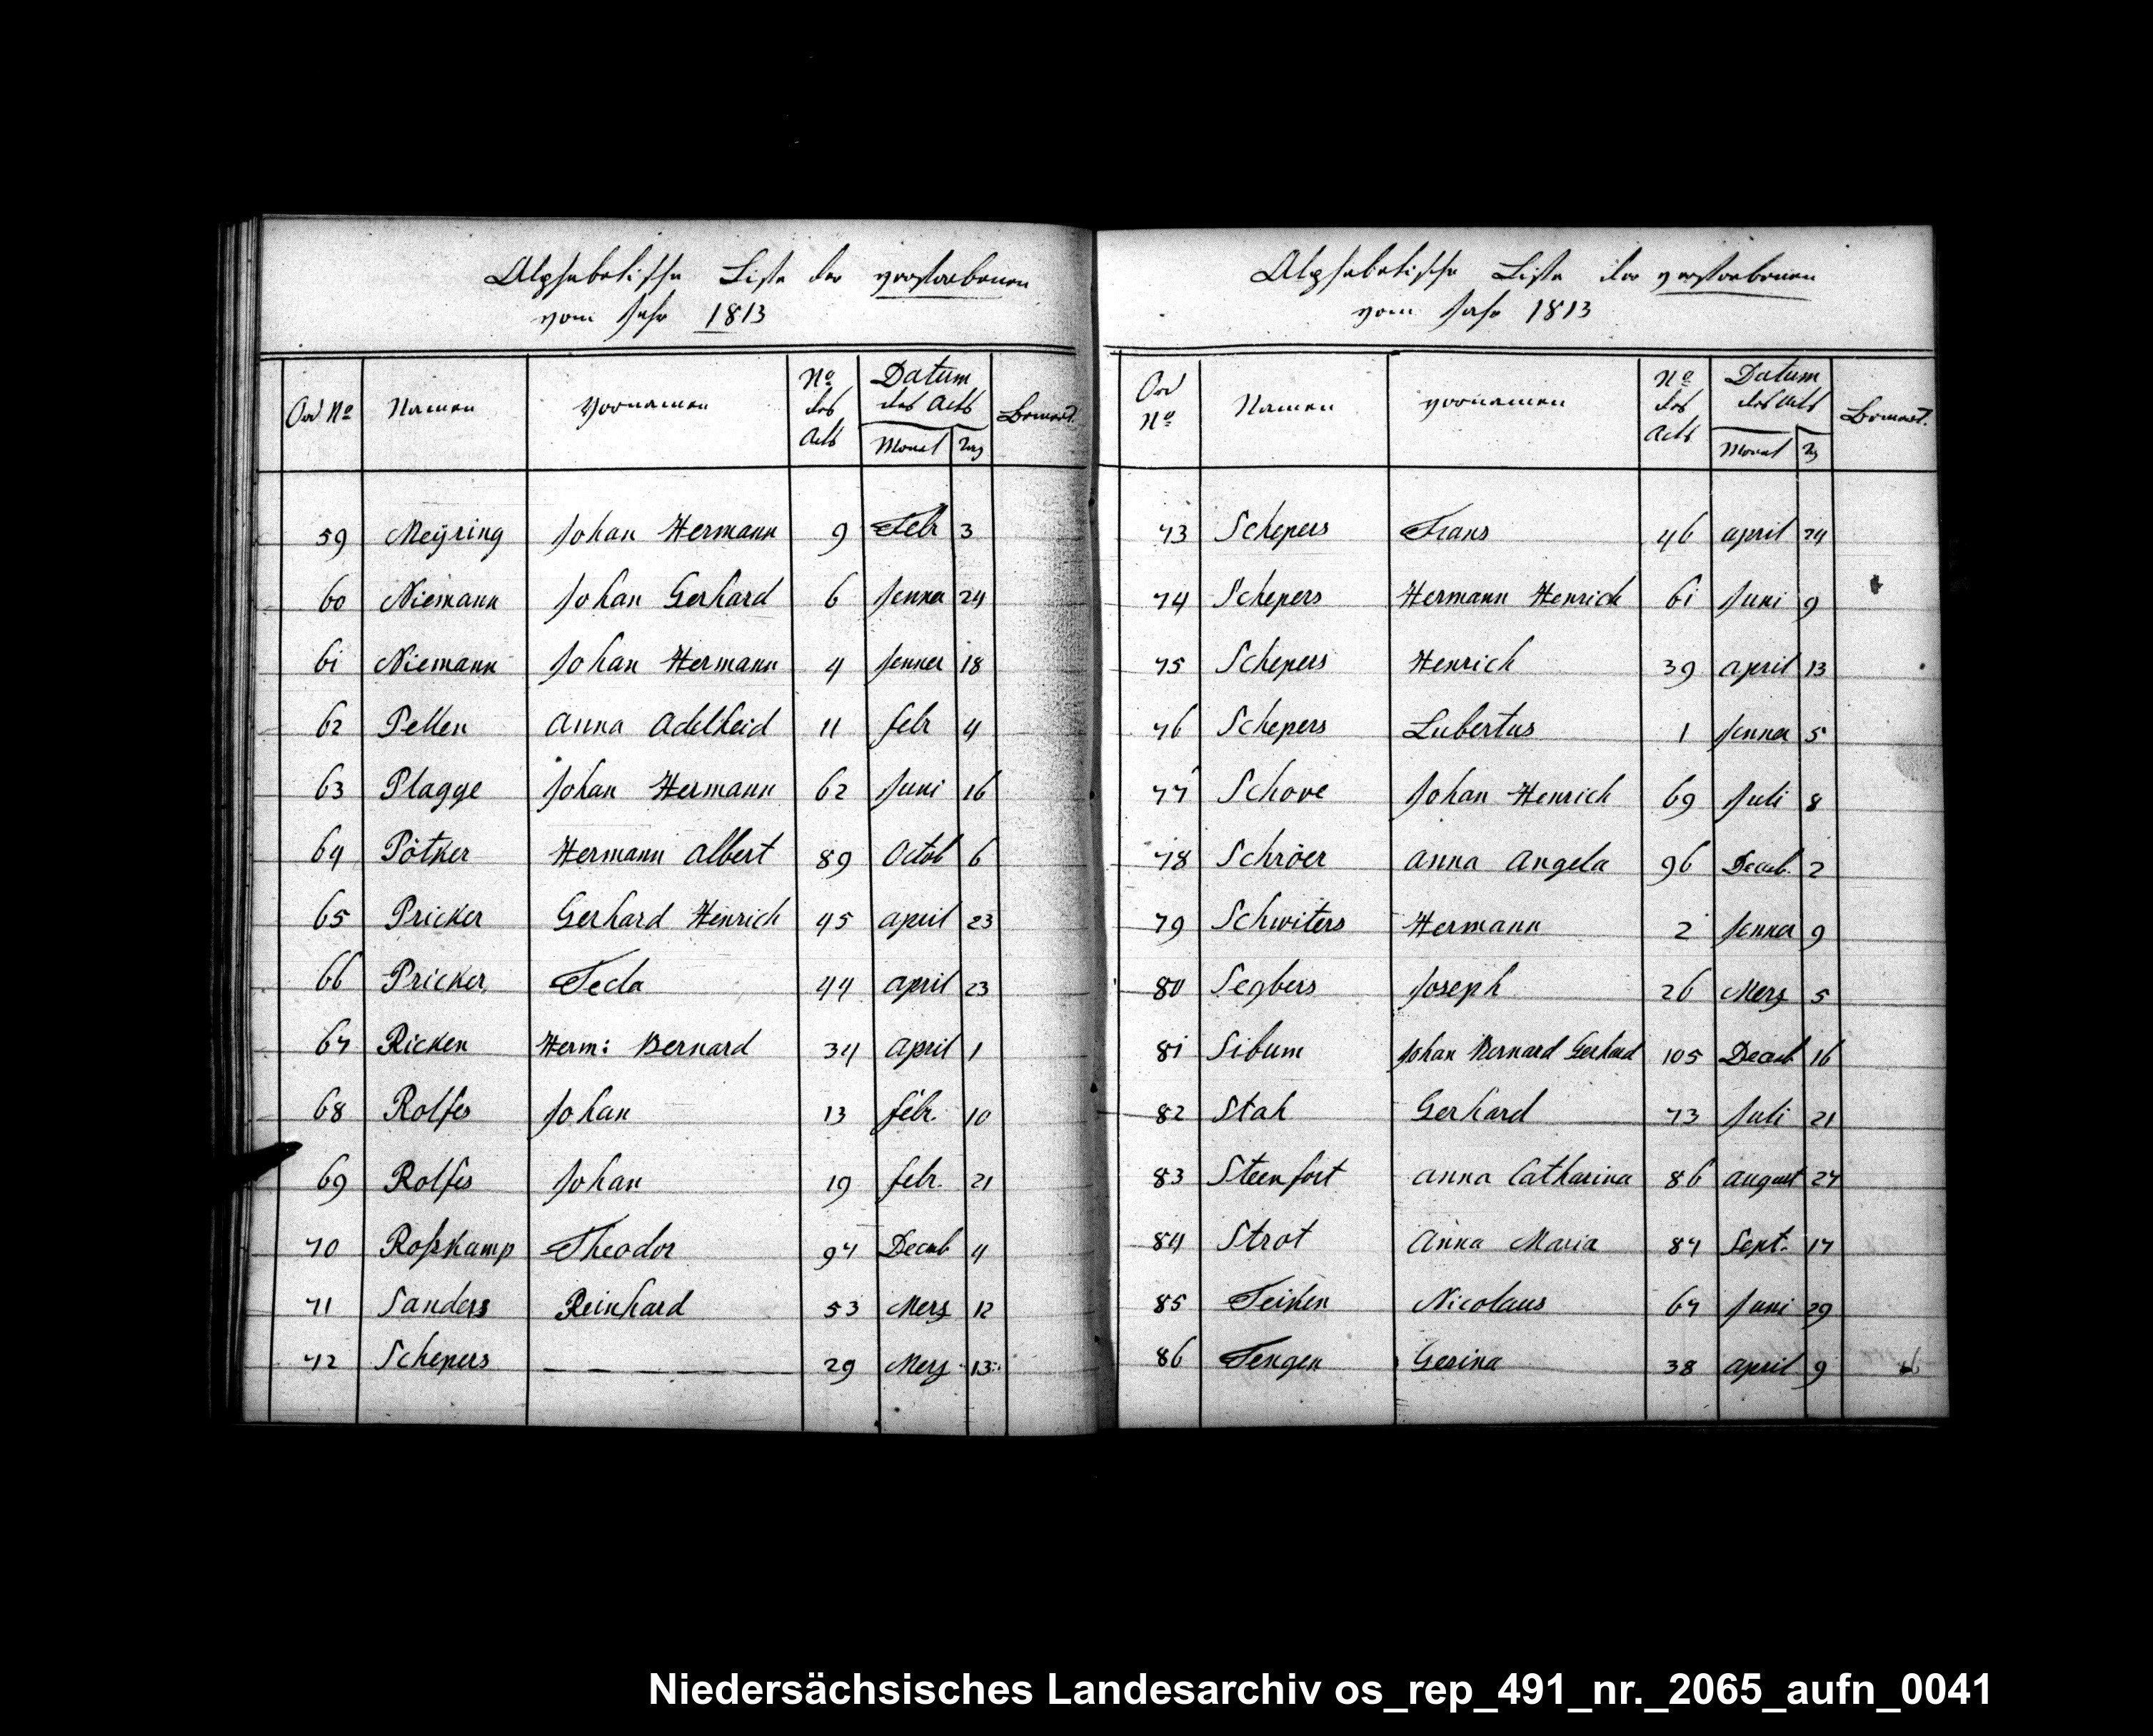 Alphabetische Liste der verstorbenen
vom Jahr 1813
Ord Nº Namen Vornamen Nº des Acts Datum des Acts Monat Tag Bemerk.
59 Meÿring Johan Hermann 9 Febr 3
60 Niemann Johan Gerhard 6 Jenner 24
61 Niemann Johan Hermann 4 Jenner 18
62 Pellen Anna Adelheid 11 febr 4
63 Plagge Johan Hermann 62 Juni 16
64 Pötker Hermann Albert 89 Octob 6
65 Pricker Gerhard Henrich 45 april 23
66 Pricker Tecla 44 april 23
67 Ricken Herm: Bernard 34 april 1
68 Rolfes Johan 13 febr. 10
69 Rolfes Johan 19 febr. 21
70 Roßkamp Theodor 97 Decemb 4
71 Sanders Reinhard 53 Merz 12
72 Schepers — — — 29 Merz 13
Alphabetische Liste der verstorbenen
vom Jahr 1813
Ord Nº Namen Vornamen Nº des Acts Datum des Acts Monat Tg Bemerk.
73 Schepers Frans 46 april 24
74 Schepers Hermann Henrich 61 Juni 9
75 Schepers Henrich 39 april 13
76 Schepers Lubertus 1 Jenner 5
77 Schove Johan Henrich 69 Juli 8
78 Schröer Anna Angela 96 Decemb. 2
79 Schwiters Hermann 2 Jenner 9
80 Segbers Joseph 26 Merz 5
81 Sibum Johan Bernard Gerhard 105 Decemb 16
82 Stah Gerhard 73 Juli 21
83 Steenfort Anna Catharina 86 august 27
84 Strot Anna Maria 87 Sept. 17
85 Teiken Nicolaus 67 Juni 29
86 Tengen Gesina 38 april 9
Niedersächsisches Landesarchiv os_rep_491_nr._2065_aufn_0041